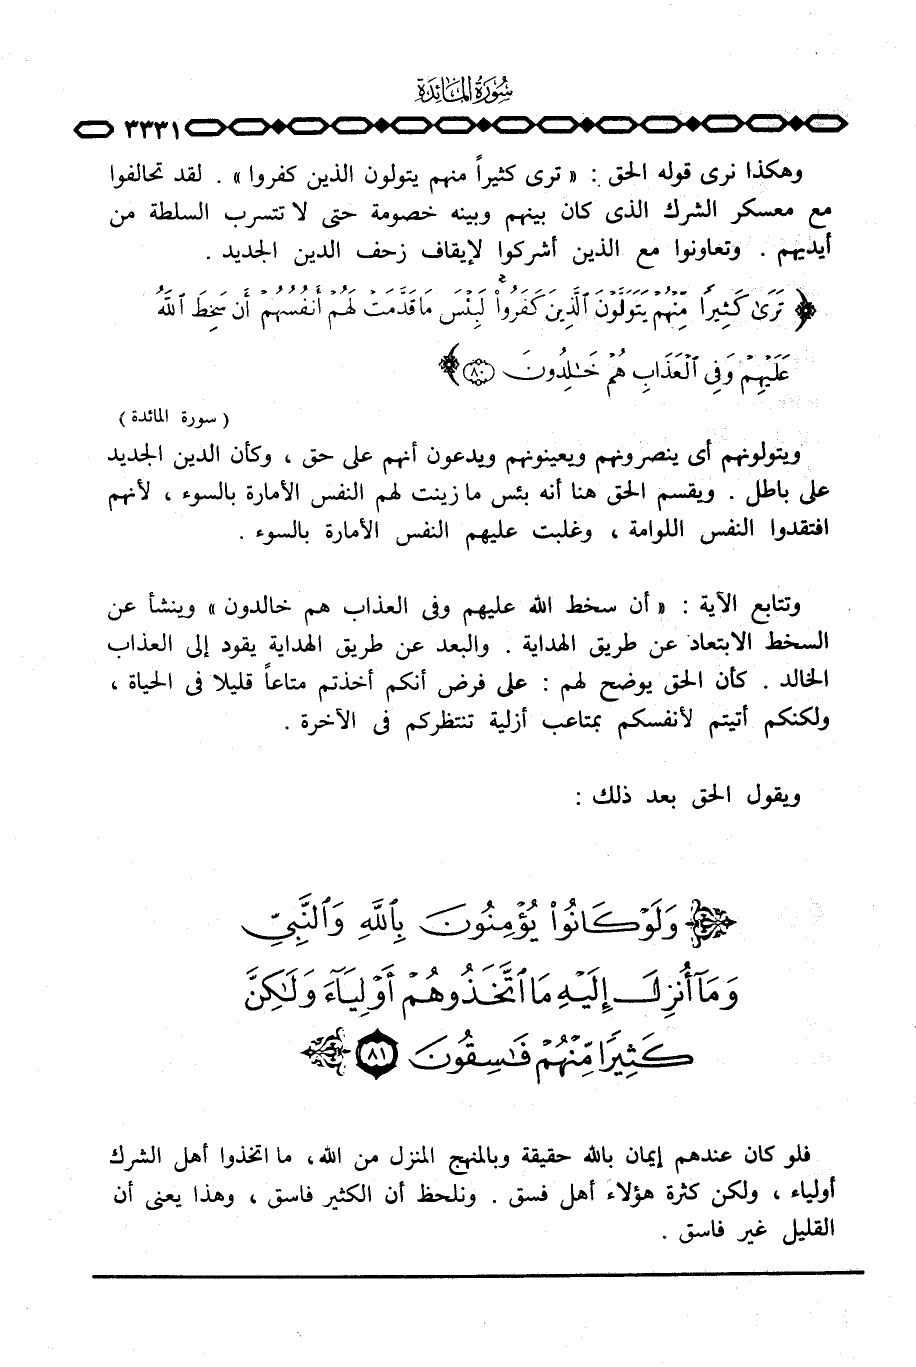 سُورَةُ المَائِدَةِ
٣٣٣١
وهكذا نرى قوله الحق : « ترى كثيراً منهم يتولون الذين كفروا » . لقد تحالفوا
مع معسكر الشرك الذى كان بينهم وبينه خصومة حتى لا تتسرب السلطة من
أيديهم . وتعاونوا مع الذين أشركوا لإيقاف زحف الدين الجديد .
﴿ تَرَىٰ كَثِيرًا مِّنْهُمْ يَتَوَلَّوْنَ ٱلَّذِينَ كَفَرُواْ ۚ لَبِئْسَ مَا قَدَّمَتْ لَهُمْ أَنفُسُهُمْ أَن سَخِطَ ٱللَّهُ
عَلَيْهِمْ وَفِى ٱلْعَذَابِ هُمْ خَـٰلِدُونَ ﴿٨٠﴾ ﴾
( سورة المائدة )
ويتولونهم أى ينصرونهم ويعينونهم ويدعون أنهم على حق ، وكأن الدين الجديد
على باطل . ويقسم الحق هنا أنه بئس ما زينت لهم النفس الأمارة بالسوء ، لأنهم
افتقدوا النفس اللوامة ، وغلبت عليهم النفس الأمارة بالسوء .
وتتابع الآية : « أن سخط الله عليهم وفى العذاب هم خالدون » وينشأ عن
السخط الابتعاد عن طريق الهداية . والبعد عن طريق الهداية يقود إلى العذاب
الخالد . كأن الحق يوضح لهم : على فرض أنكم أخذتم متاعاً قليلا فى الحياة ،
ولكنكم أتيتم لأنفسكم بمتاعب أزلية تنتظركم فى الآخرة .
ويقول الحق بعد ذلك :
﴿ وَلَوْ كَانُواْ يُؤْمِنُونَ بِٱللَّهِ وَٱلنَّبِىِّ
وَمَآ أُنزِلَ إِلَيْهِ مَا ٱتَّخَذُوهُمْ أَوْلِيَآءَ وَلَـٰكِنَّ
كَثِيرًا مِّنْهُمْ فَـٰسِقُونَ ﴿٨١﴾ ﴾
فلو كان عندهم إيمان بالله حقيقة وبالمنهج المنزل من الله، ما اتخذوا أهل الشرك
أولياء ، ولكن كثرة هؤلاء أهل فسق . ونلحظ أن الكثير فاسق ، وهذا يعنى أن
القليل غير فاسق .